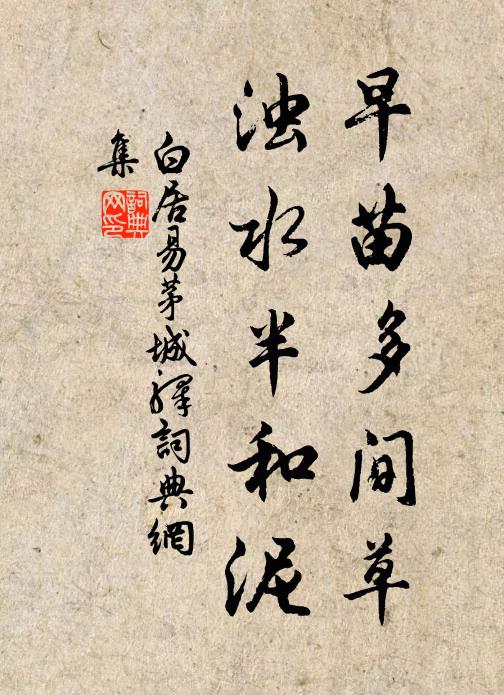 早苗多间草
浊水半和泥
白居易茅城驿词典網
集
詞典網印